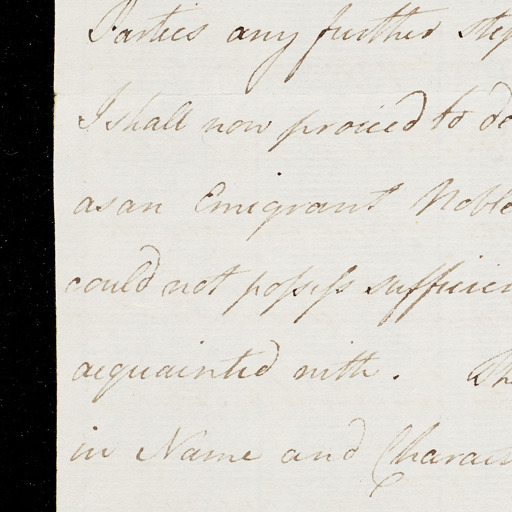 Parties any further step
I shall now proceed to de
as an Emigrant Noble
could not possess sufficien
acquainted with. Th
in Name and Charact